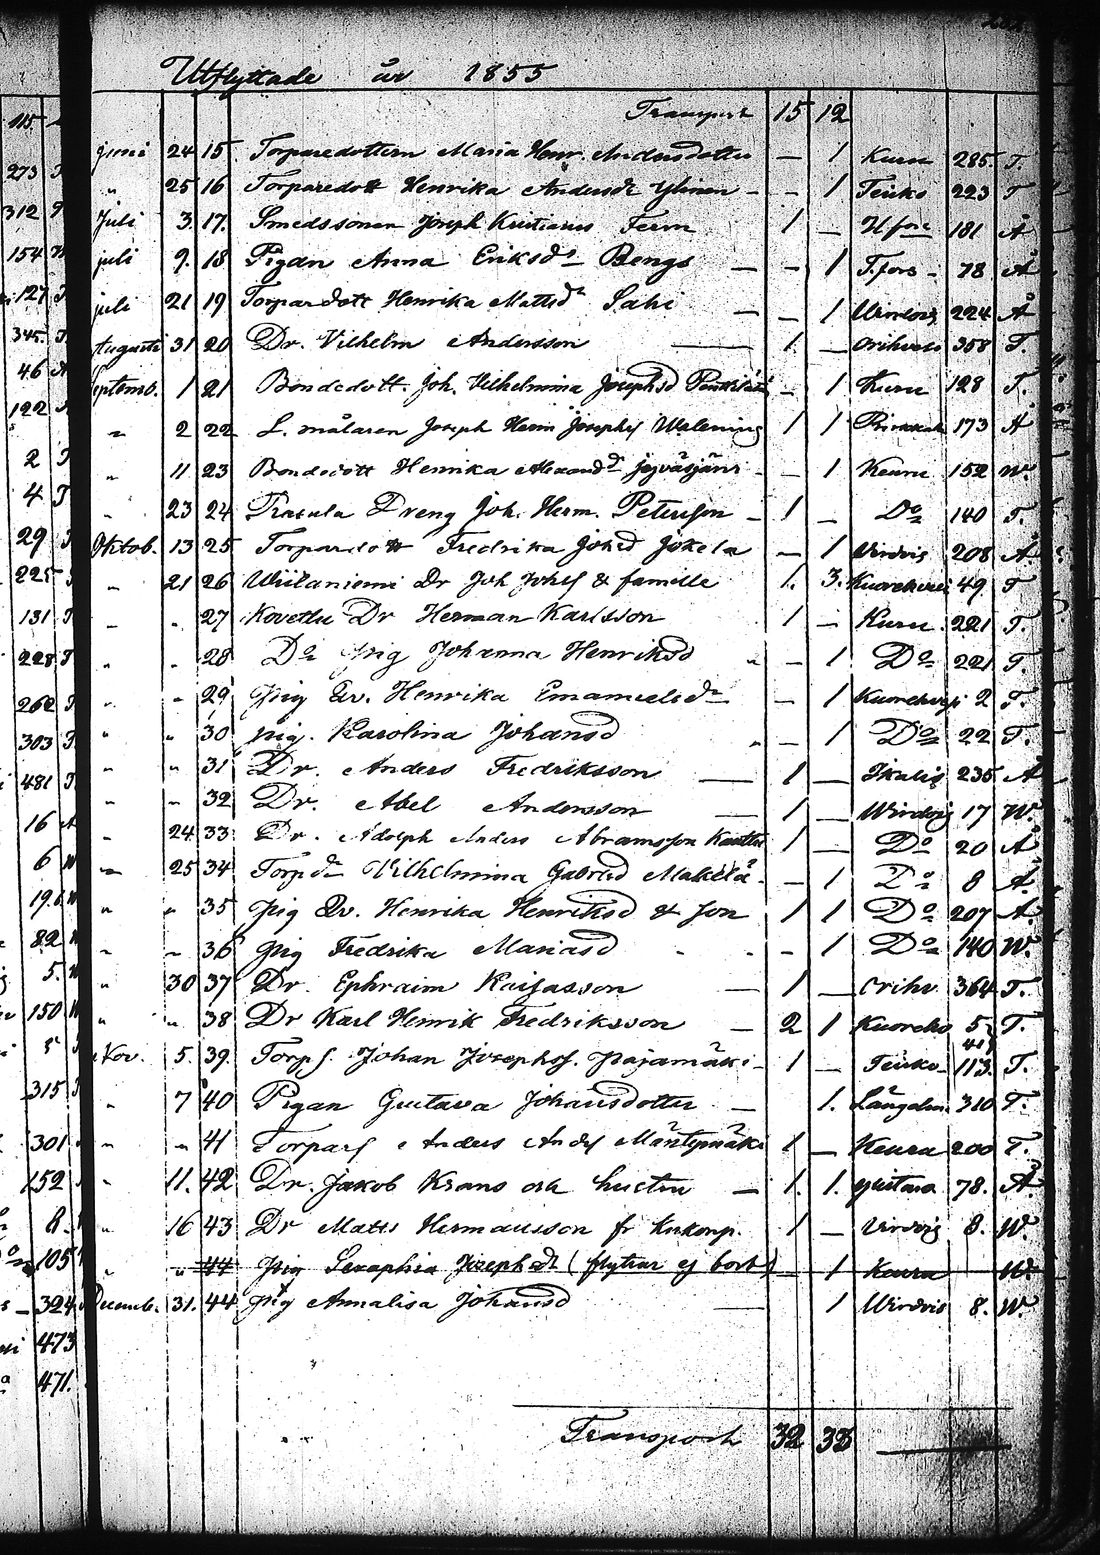 Utflyttade år 1855
Transport 15 12
Juni 24 15 Torparedottern Maria Henr. Andersdotter — 1 Kuru 285. T.
" 25 16 Torparedott Henrika Andersdr Ylinen — — 1 Teisko 223 T
Juli 3. 17. Smedssonen Joseph Kristianus Ferm 1 — H:fors 181 Å
juli 9. 18 Pigan Anna Eriksdr Bengs — — 1 T.fors — 78 Å
juli 21 19 Torparedott Henrika Mattsdr Sahi — 1 Virdois 224 Å
Augusti 31 20 Dr. Vilhelm Andersson — 1 — Orihvesi 358 T.
Septemb. 1 21 Bondedott. Joh. Vilhelmina Josephsd — 1 Kuru 128 T.
" 2 22 L. målaren Joseph Herm Josephsf Walenius 1 1 173 Å
" 11 23 Bondedott Henrika Alexandr — 1 Keuru 152 W.
" 23 24 Dreng Joh. Herm. Petersson — 1 — Do 140 T.
Oktob. 13 25 Torparedott Fredrika Johsd Jokela — 1 Virdois 208 Å
" 21 26 Dr Joh Johsf & famille 1. 3. Kuorehvesi 49 T
" " 27 Dr Herman Karlsson 1 — Kuru 221 T.
" " 28 Do pig Johanna Henriksd " — 1 Do 221 T.
" " 29 pig Ev. Henrika Emanuelsdr — 1 Kuorehvesi 2 T.
" " 30 pig. Karolina Johansd " — 1 Do 22 T.
" " 31 Dr. Anders Fredriksson — 1 — Ikalis 235 Å
" " 32 Dr. Abel Andersson — 1 — Wirdois 17 W.
" 24 33 Dr. Adolph Anders Abramsson 1 — Do 20 Å
" 25 34 Torpdr Vilhelmina Gabrlsd Mäkelä — 1 Do 8 Å
" " 35 pig Ev. Henrika Henriksd & son 1 1 Do 207 Å
" " 36 pig Fredrika Mariasd — 1 Do 140 W.
" 30 37 Dr. Ephraim Kaijasson — 1 — Orihv. 364 T.
" " 38 Dr Karl Henrik Fredriksson — 2 1 Kuoreho 5 T.
41
Nov. 5. 39. Torpf. Johan Josephsf. Pajamäki 1 — Teisko 113. T.
" 7 40 Pigan Gustava Johansdotter — 1. Längelm. 310 T.
" " 41 Torparf Anders Andf Mäntymäki 1 — Keuru 200 T.
" 11. 42 Dr. Jakob Krans och hustru — 1. 1. Gustava 78. Å
" 16 43 Dr Matts Hermansson fr Kirkonp. 1 — Virdois 8. W.
" " 44 pig Seraphia Josephsdr (flyttar ej bort) 1 Keuru W.
December 31. 44 pig Annalisa Johansd — 1 Wirdois 8. W.
Transport 32 38